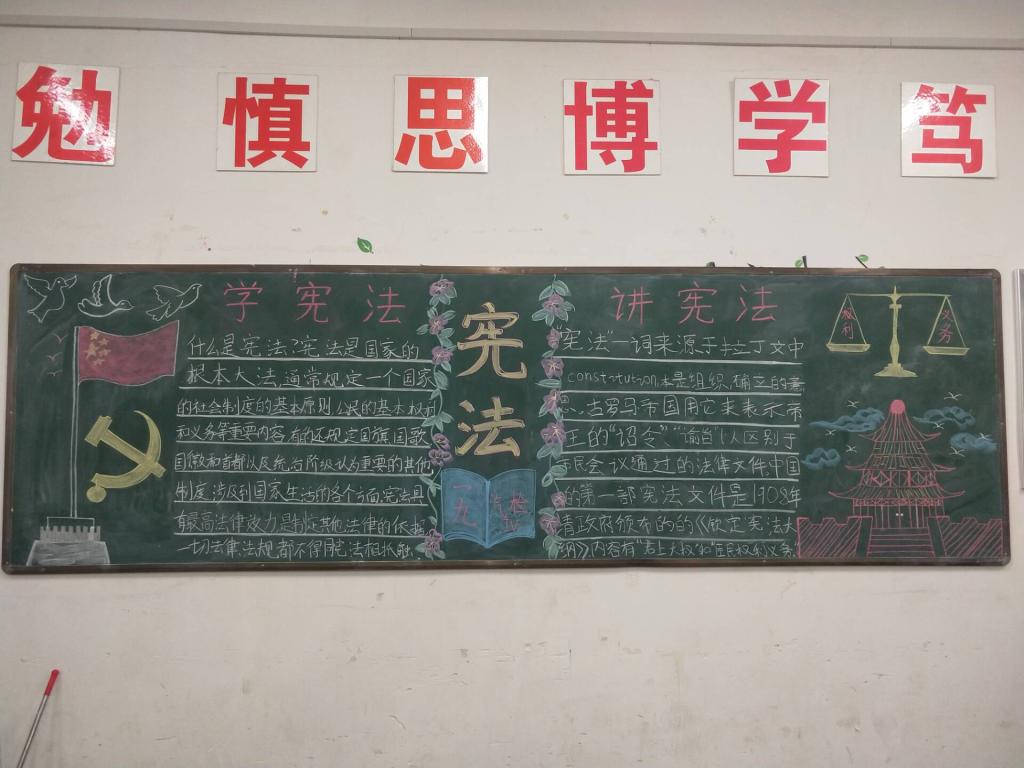 勉 慎 思 博 学 笃
学宪法
什么是宪法?宪法是国家的
根本大法,通常规定一个国家
的社会制度的基本原则公民的基本权利
和义务等重要内容,有的还规定国旗国歌
国徽和首都以及统治阶级认为重要的其他
制度,涉及到国家生活的各个方面宪法具
有最高法律效力是制定其他法律的依据
一切法律法规都不得同宪法相抵触
宪法
一九
汽检
讲宪法
"宪法"一词来源于拉丁文中
constitution,本是组织、确立的意
思、古罗马帝国用它来表示帝
王的"诏令""谕旨"以区别于
民会议通过的法律文件中国
的第一部宪法文件是1908年
清政府颁布的的《钦定宪法大
纲》内容有"君上大权"和"臣民权利义务
权利
义务